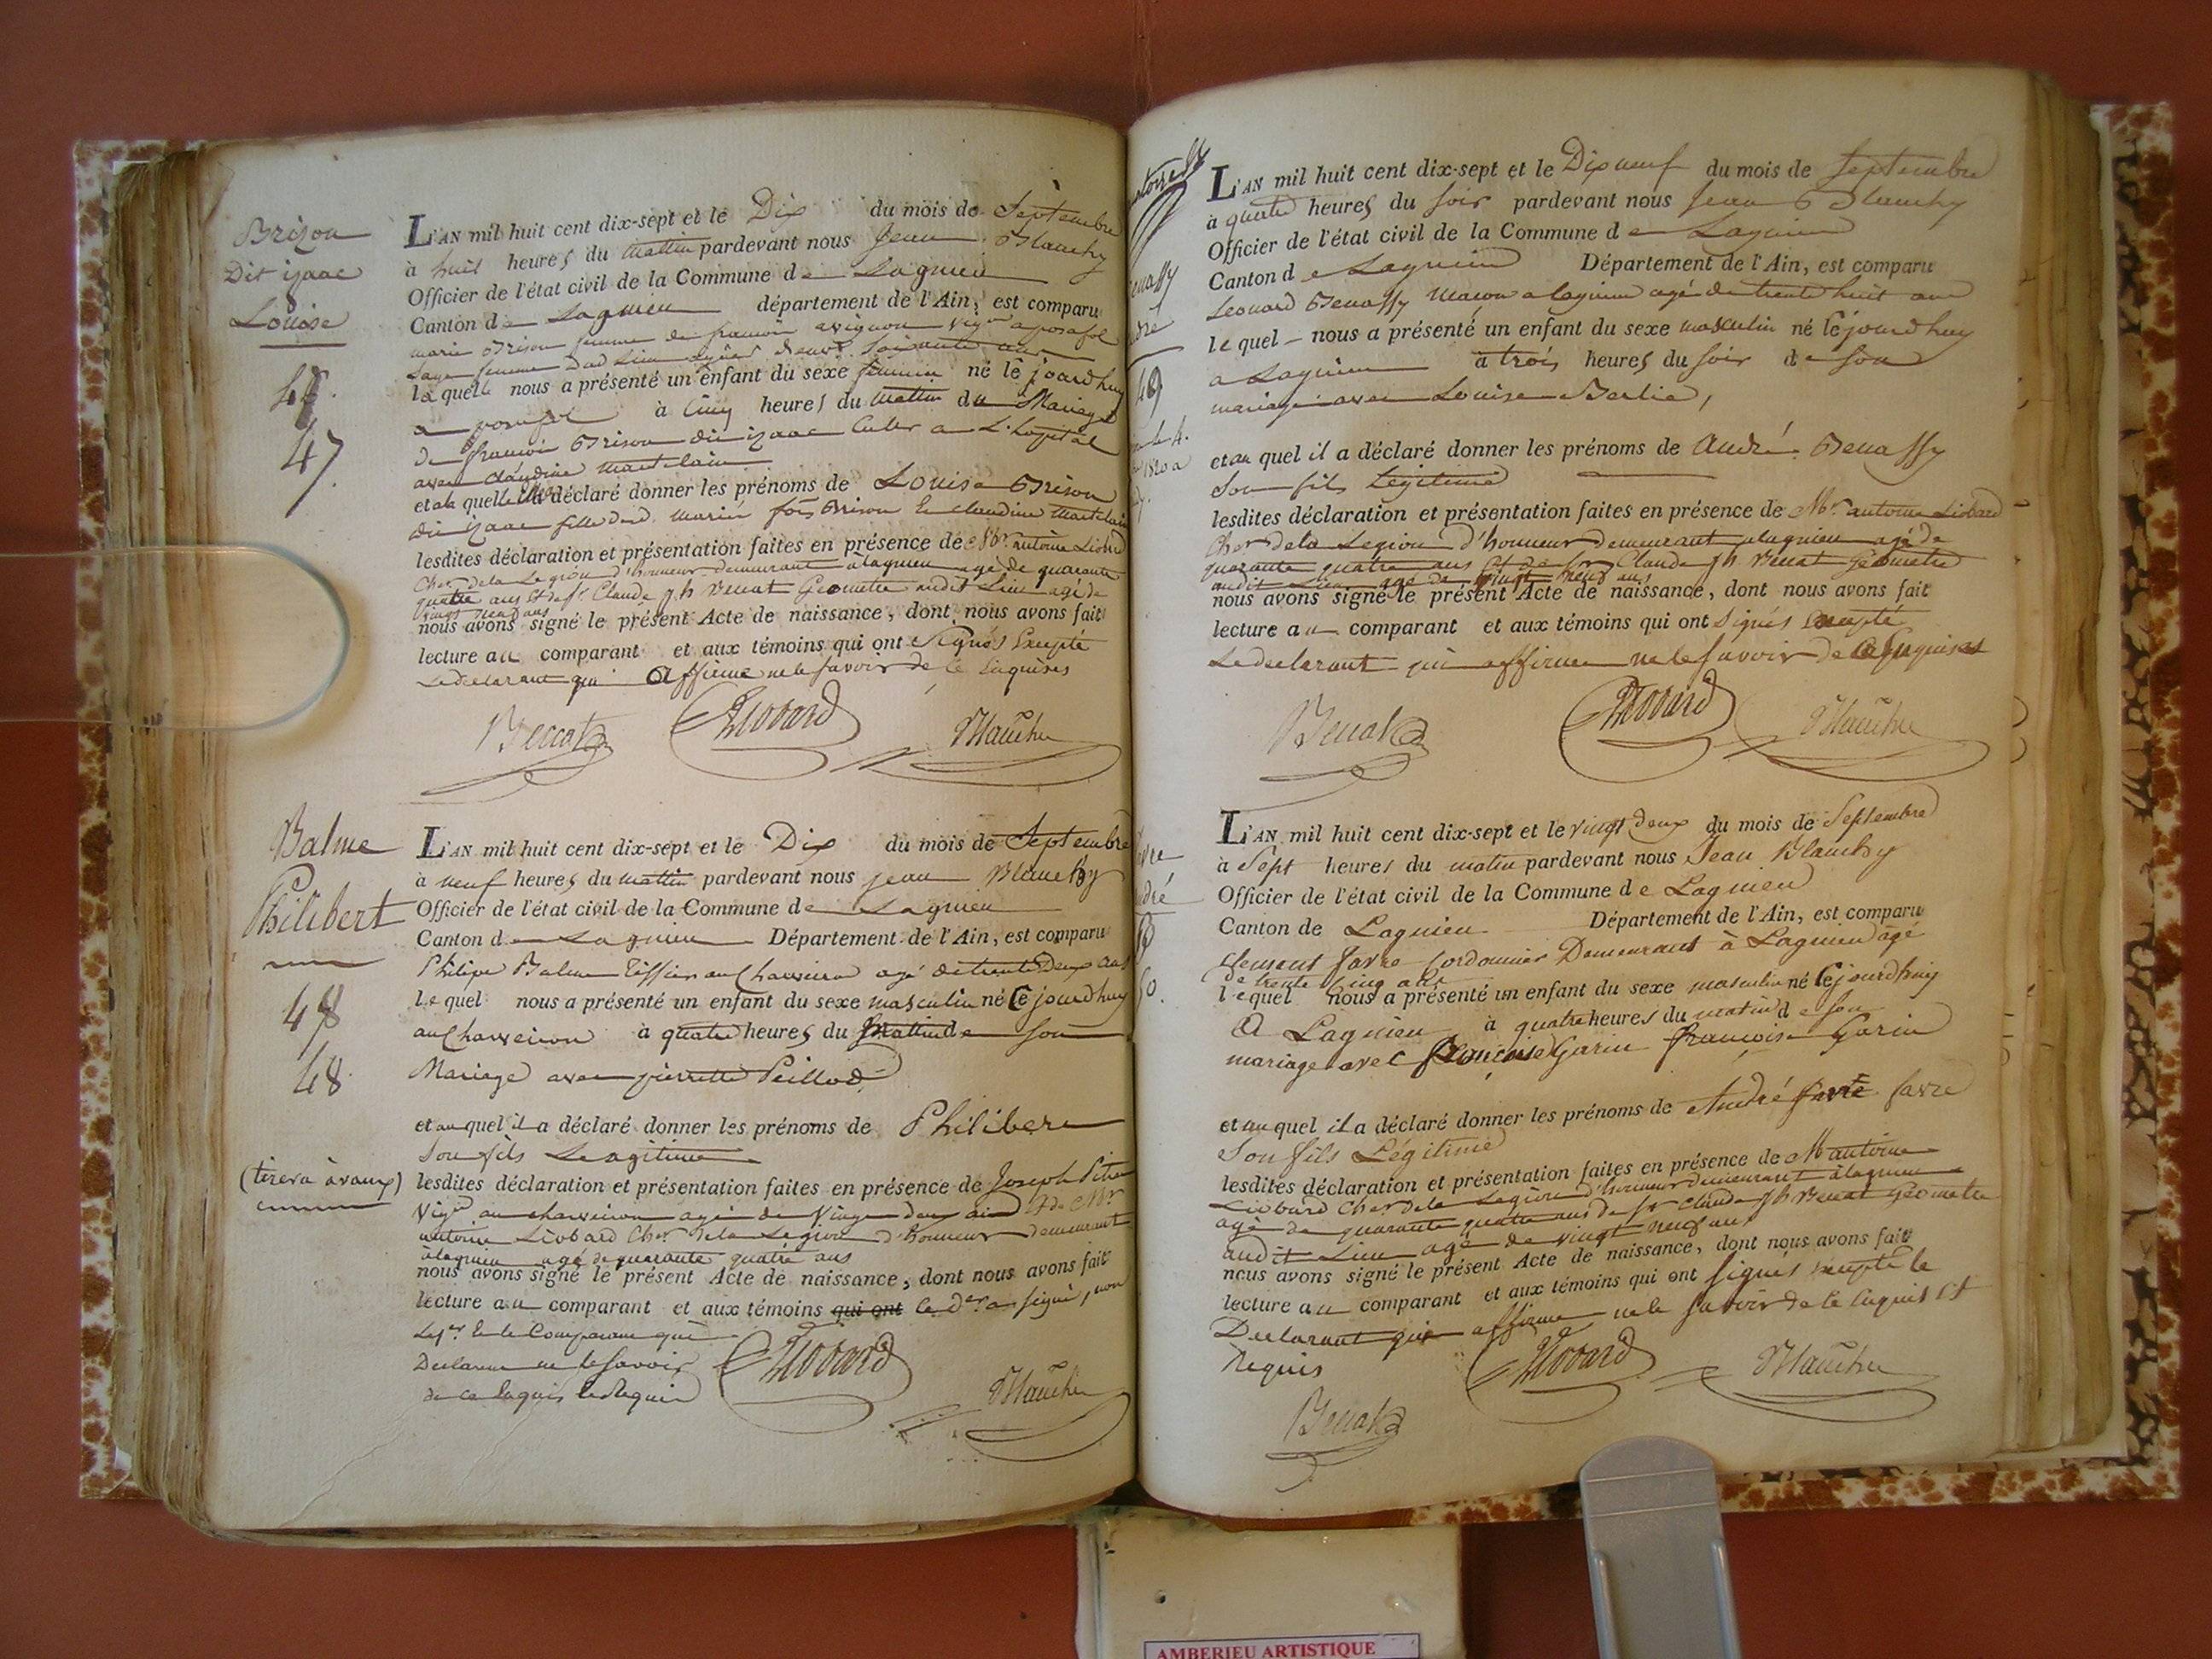 Brison
Dit izaac
Louise
47.
L'AN mil huit cent dix-sept et le Dix du mois de Septembre
à huit heures du mattin pardevant nous Jean Blanchy
Officier de l'état civil de la Commune de Lagnieu
Canton de Lagnieu département de l'Ain, est comparu
marie Brison femme de francois avignon vigon a posafol
Sage femme dud Lieu agée de soixante ans
laquelle nous a présenté un enfant du sexe féminin né le jourdhuy
a posafol à Cinq heures du mattin du Mariage
de francois Brison dit izaac Culr a L'hopital
avec claudine Martelain
et a laquelle elle a déclaré donner les prénoms de Louise Brison
dit izaac fille dud. Mariés fois Brison & claudine Martelain
lesdites déclaration et présentation faites en présence de Mr. antoine Liobard
Cher dela Legion d'honneur demeurant à lagnieu agé de quarante
quatre ans Et de sr. Claude jh Benat Géometre audit Lieu agé de
vingt neuf ans
nous avons signé le présent Acte de naissance, dont nous avons fait
lecture au comparant et aux témoins qui ont Signés Excepté
Le declarant qui affirme ne le savoir de ce Enquises
Benat Liobard Blanchy
Balme
Philibert
48
48.
(tirera à vaux)
L'AN mil huit cent dix-sept et le Dix du mois de Septembre
à neuf heures du mattin pardevant nous jean Blanchy
Officier de l'état civil de la Commune de Lagnieu
Canton de Lagnieu Département de l'Ain, est comparu
Philipe Balme Tissier au Charveiron agé de trente Deux ans
lequel nous a présenté un enfant du sexe masculin né Ce jourdhuy
au Charveiron à quatre heures du mattin de Son
Mariage avec pierrette Peillod
et auquel il a déclaré donner les prénoms de Philibert
Son fils Leagitime
lesdites déclaration et présentation faites en présence de Joseph
Vigon au charveiron agé de Vingt deux ans Et de Mr.
antoine Liobard Cher dela Legion d'honneur demeurant
à lagnieu agé de quarante quatre ans
nous avons signé le présent Acte de naissance, dont nous avons fait
lecture au comparant et aux témoins qui ont le der a signé, non
Le 1er & le Comparant qui
Declarent ne le savoir
de ce Enquis & Requis
Liobard Blanchy
49
L'AN mil huit cent dix-sept et le Dix neuf du mois de Septembre
à quatre heures du soir pardevant nous Jean Blanchy
Officier de l'état civil de la Commune de Lagnieu
Canton de Lagnieu Département de l'Ain, est comparu
Leonard Benassy Macon a lagnieu agé de trente huit ans
lequel nous a présenté un enfant du sexe masculin né le jourdhuy
a Lagnieu à trois heures du soir de son
mariage avec Louise Berlie,
et au quel il a déclaré donner les prénoms de André Benassy
Son fils Légitime
lesdites déclaration et présentation faites en présence de Mr. antoine Liobard
Cher dela Legion d'honneur demeurant a lagnieu agé de
quarante quatre ans Et de sr Claude jh Benat Géometre
audit Lieu agé de vingt neuf ans
nous avons signé le présent Acte de naissance, dont nous avons fait
lecture au comparant et aux témoins qui ont signés Excepté
Le declarant qui affirme ne le savoir de ce Enquises
Benat Liobard Blanchy
50.
L'AN mil huit cent dix-sept et le vingt deux du mois de Septembre
à Sept heures du matin pardevant nous Jean Blanchy
Officier de l'état civil de la Commune de Lagnieu
Canton de Lagnieu Département de l'Ain, est comparu
Clement favre Cordonnier Demeurant à Lagnieu agé
de trente cinq ans
lequel nous a présenté un enfant du sexe masculin né Cejourdhuy
A Lagnieu à quatre heures du matin de son
mariage avec françoise Garin françoise Garin
et au quel il a déclaré donner les prénoms de André favre favre
Son fils Légitime
lesdites déclaration et présentation faites en présence de M antoine
Liobard Cher dela Legion d'honneur demeurant à lagnieu
agé de quarante quatre ans de sr Claude jh Benat Geometre
audit Lieu agé de vingt neuf ans
nous avons signé le présent Acte de naissance, dont nous avons fait
lecture au comparant et aux témoins qui ont signés excepté le
Declarant qui affirme ne le savoir de ce Enquis Et
Requis
Liobard Blanchy
Benat
AMBERIEU ARTISTIQUE